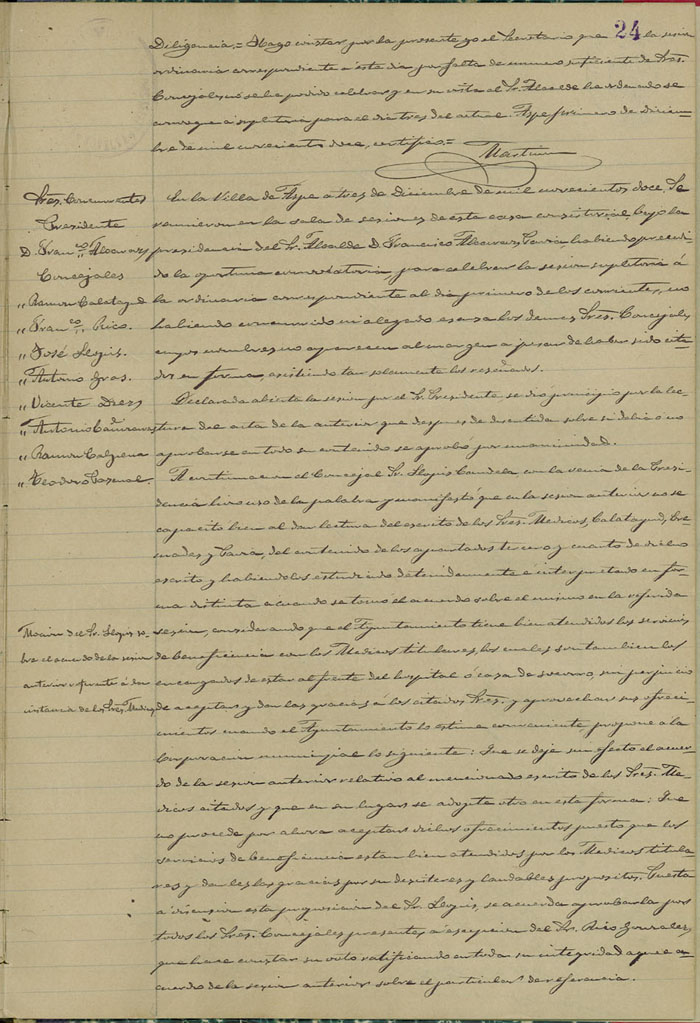 24
Diligencia.= Hago constar por la presente yo el Secretario que la sesion
ordinaria correspondiente a este dia por falta de numero suficiente de Sres.
Concejales no se ha podido celebrar y en su vista el Sr. Alcalde ha ordenado se
convoque a supletoria para el dia tres del actual. Aspe primero de Diciem-
bre de mil novecientos doce, certifico.=
Sres. Concurrentes
Presidente
D. Franco. Alcaraz
Concejales
" Ramon Calatayud
" Franco. Rico.
" José Llopis.
" Antonio Gras.
" Vicente Diez
" Antonio
" Ramon
" Teodoro Pascual
En la Villa de Aspe a tres de Diciembre de mil novecientos doce. Se
reunieron en la sala de sesiones de esta casa consistorial, bajo la
presidencia del Sr. Alcalde D. Francisco Alcaraz, habiendo precedi-
do la oportuna convocatoria, para celebrar la sesion supletoria á
la ordinaria correspondiente al dia primero de los corrientes, no
habiendo concurrido ni alegado escusa los demas Sres. Concejales
cuyos nombres no aparecen al margen a pesar de haber sido cita-
dos en forma, asistiendo tan solamente los reseñados.
Declarada abierta la sesion por el Sr. Presidente, se dió principio por la lec-
tura del acta de la anterior que despues de discutida sobre si debia o no
aprobarse en todo su contenido se aprobó por unanimidad.
A continuacion el Concejal Sr. Llopis Candela con la venia de la Presi-
dencia hizo uso de la palabra y manifestó que en la sesion anterior no se
capacitó bien al dar lectura del escrito de los Sres. Medicos, Calatayud, Cre-
mades y, del contenido de los apartados tercero y cuarto de dicho
escrito y habiendolos estudiado detenidamente e interpretado en for-
ma distinta a cuando se tomo el acuerdo sobre el mismo en la referida
Mocion del Sr. Llopis so-
bre el acuerdo de la sesion
anterior referente á la
instancia de los Sres. Medicos
sesion, considerando que el Ayuntamiento tiene bien atendidos los servicios
de beneficencia con los Medicos titulares, los cuales son tambien los
encargados de estar al frente del hospital ó casa de socorro, sin perjuicio
de aceptar y dar las gracias á los citados Sres. y aprovechar sus ofreci-
mientos cuando el Ayuntamiento lo estime conveniente, propone a la
Corporacion municipal lo siguiente: Que se deje sin efecto el acuer-
do de la sesion anterior relativo al mencionado escrito de los Sres. Me-
dicos citados y que en su lugar se adopte otro en esta forma: Que
no procede por ahora aceptar dichos ofrecimientos puesto que los
servicios de beneficencia estan bien atendidos por los Medicos titula-
res y darles las gracias por su desinteres y laudables propositos. Puesta
a discusion esta proposicion del Sr. Llopis, se acuerda aprobarla por
todos los Sres. Concejales presentes, a escepcion del Sr. Rico Gonzalez,
que hace constar su voto ratificando en toda su integridad aquel a-
cuerdo de la sesion anterior sobre el particular de referencia.